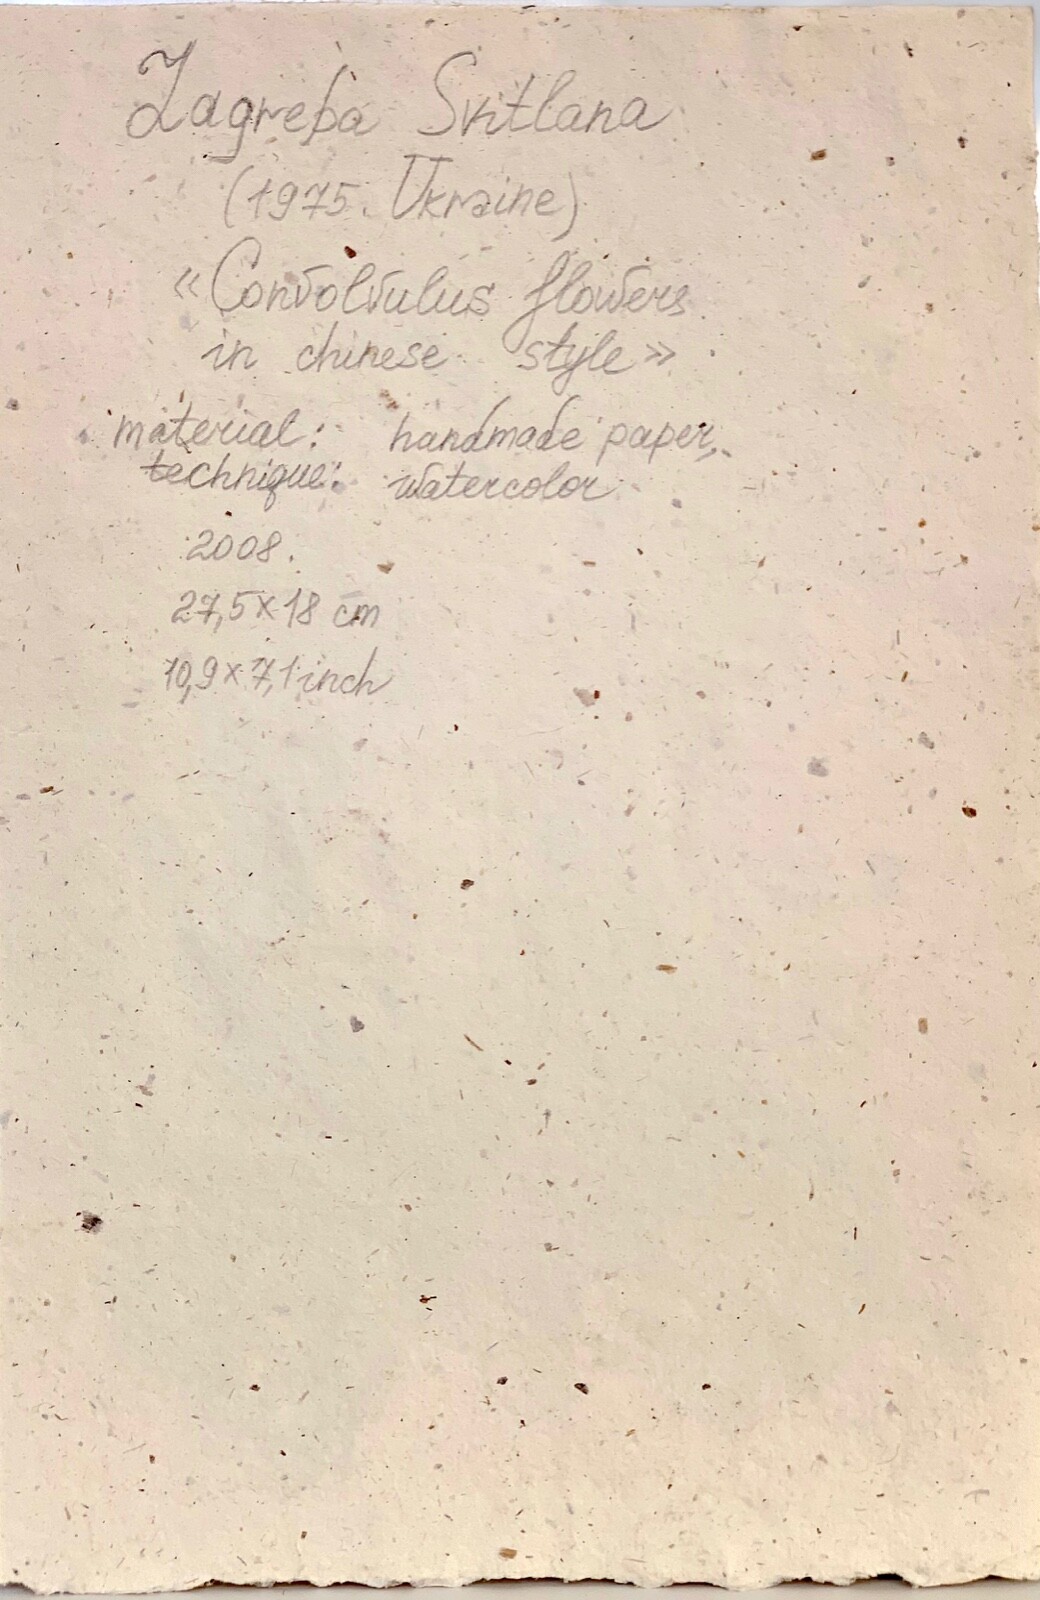 Zagreba Svitlana
(1975. Ukraine)
«Convolvulus flowers
in chinese style»
material: handmade paper,
technique: watercolor
2008.
27,5x18 cm
10,9x7,1 inch